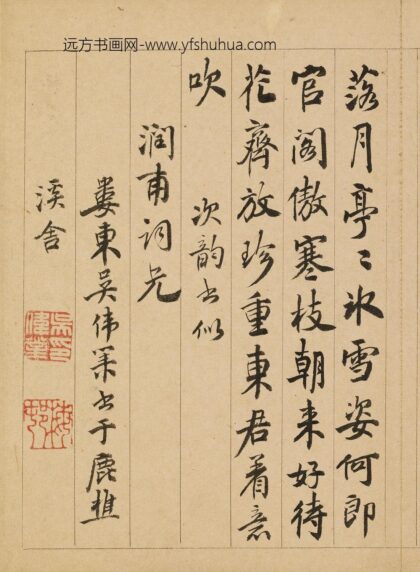 远方书画网-www.yfshuhua.com
落月亭〻冰雪姿何郎
官阁傲寒枝朝来好待
花齊放珍重東君着意
吹
次韵书似
润甫词兄
娄東吴伟業书于鹿樵
溪舍
吳印偉業
梅邨